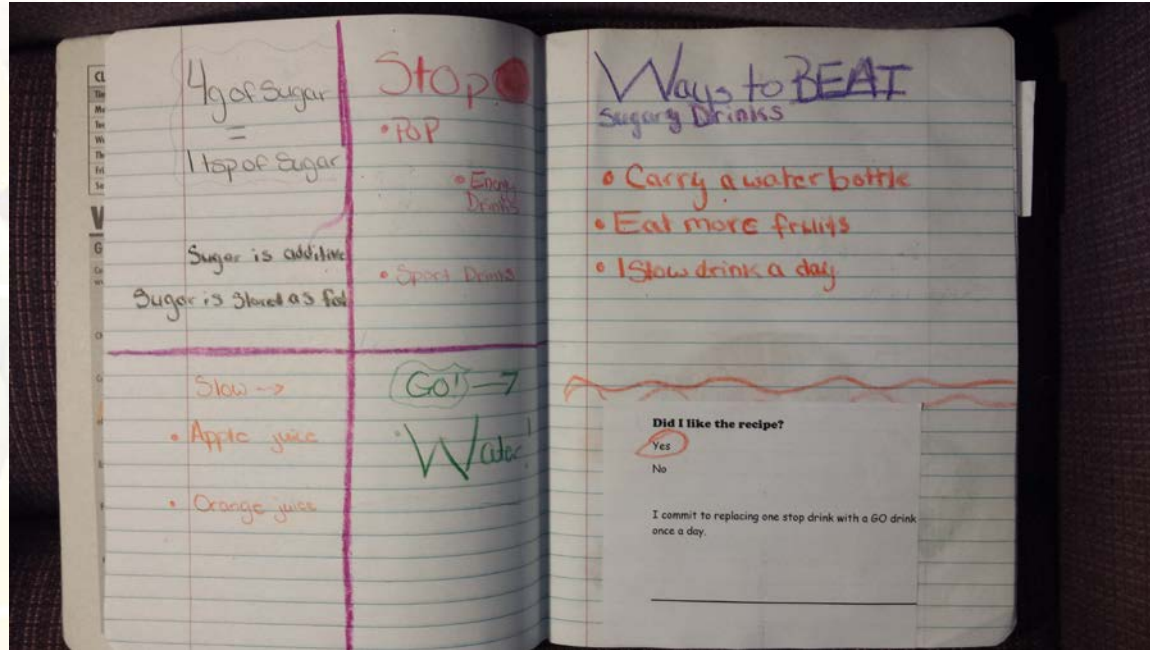 4g of Sugar
=
1 tsp of Sugar
Sugar is additive
Sugar is Stored as fat
Stop
• PoP
• Energy
Drinks
• Sport Drinks
Slow -->
• Apple juice
• Orange juice
Go! →
• Water!
Ways to BEAT
Sugary Drinks
• Carry a water bottle
• Eat more fruits
• 1 Slow drink a day
Did I like the recipe?
Yes
No
I commit to replacing one stop drink with a GO drink
once a day.